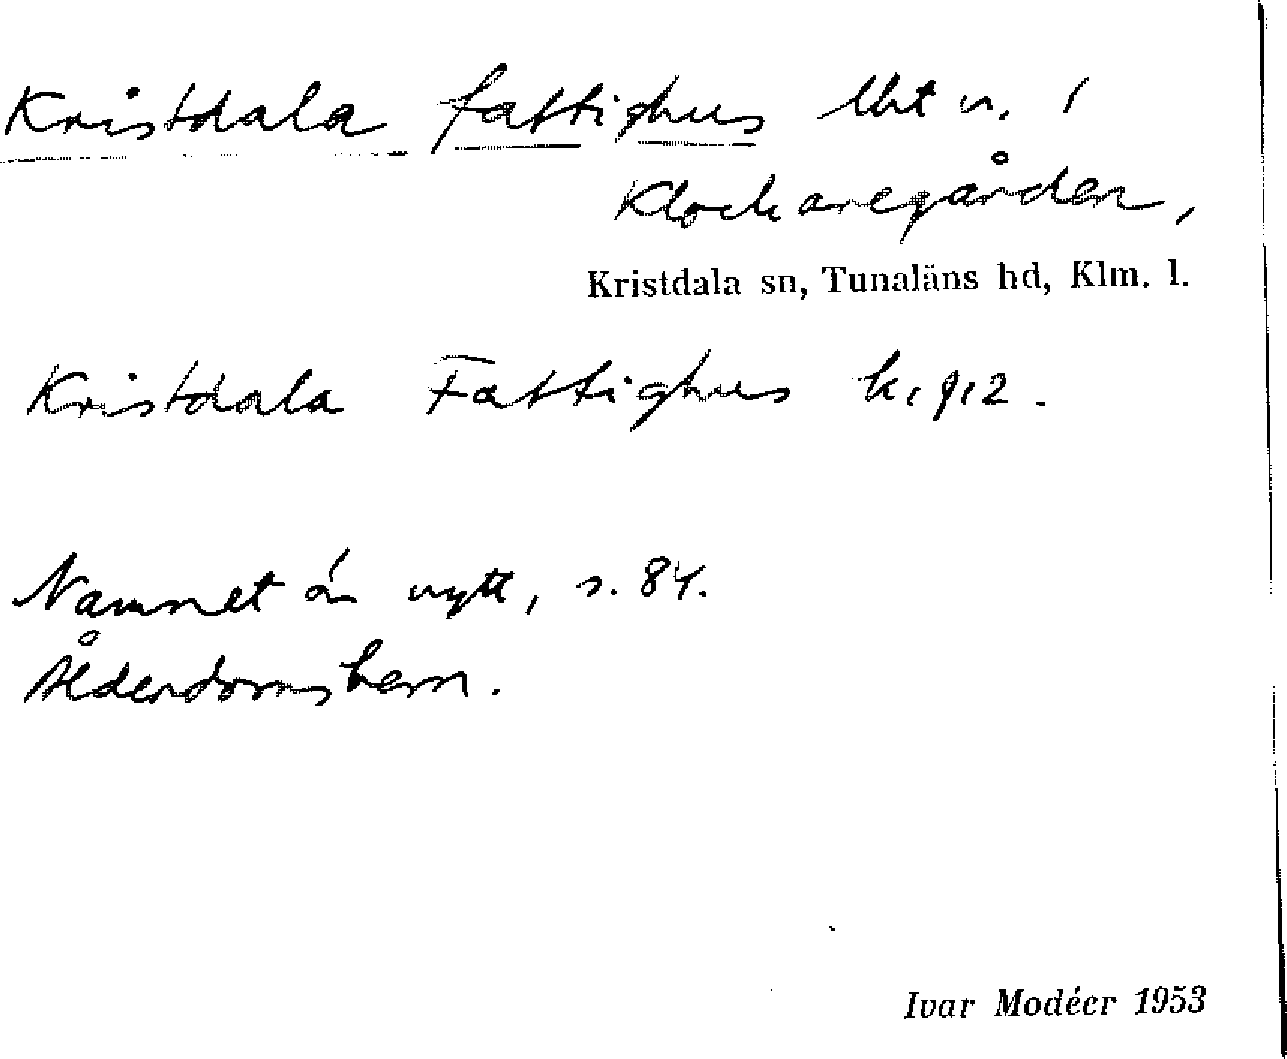 Kristdala fattighus lht n. i
Klockaregården,
Kristdala sn, Tunaläns hd, Klm. l.
Kristdala Fattighus k, 912.
Namnet är nytt, s. 84.
Ålderdomshem.
Ivar Modéer 1953